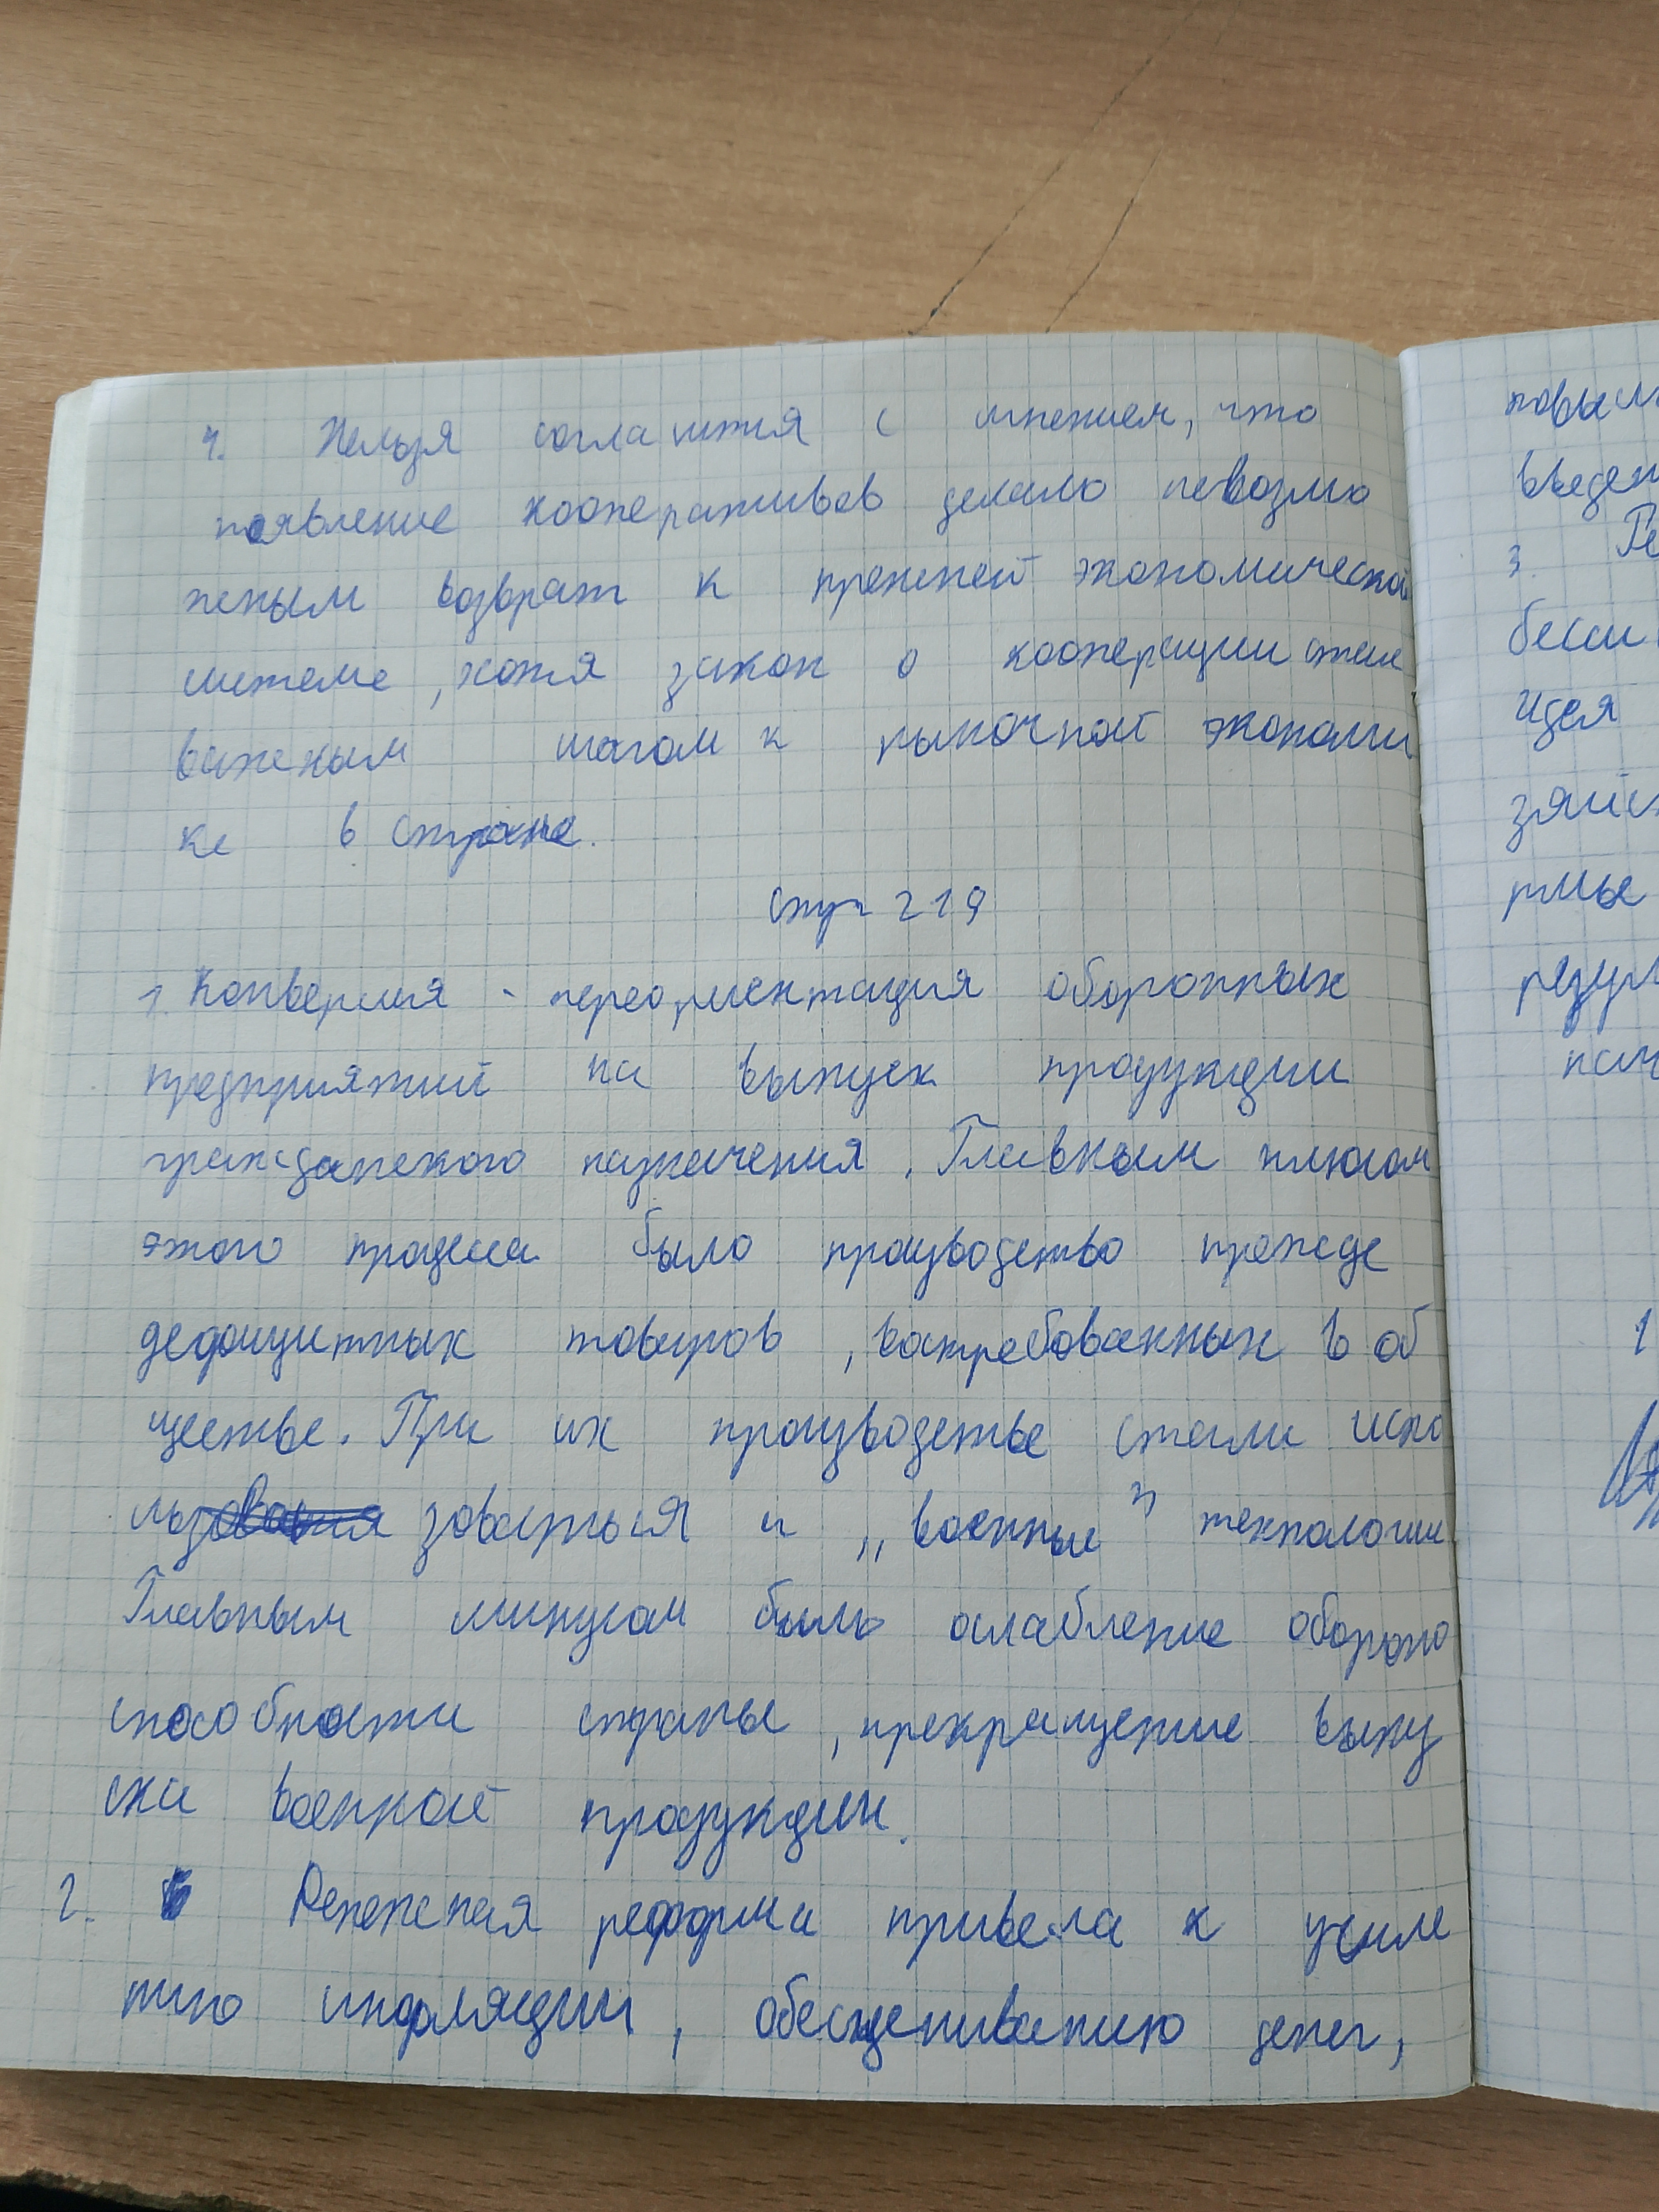 4. Нельзя согласится с мнением, что
появление кооперативов делало невозмо
жным возврат к прежней экономической
системе, хотя закон о кооперации стал
важным шагом к рыночной экономи
ке в стране.
стр 219
1. Конверсия - переориентация оборонных
предприятий на выпуск продукции
гражданского назначения. Главным плюсом
этого процесса было производство прежде
дефицитных товаров, востребованных в об
ществе. При их производстве стали испо
льзоваться и „военные" технологии.
Главным минусом было ослабление обороно
способности страны, прекращение выпу
ска военной продукции.
2. Денежная реформа привела к усиле
нию инфляции, обесцениванию денег,
введен
3. Ре
идея
зяйст
рмы
резул
нач
1